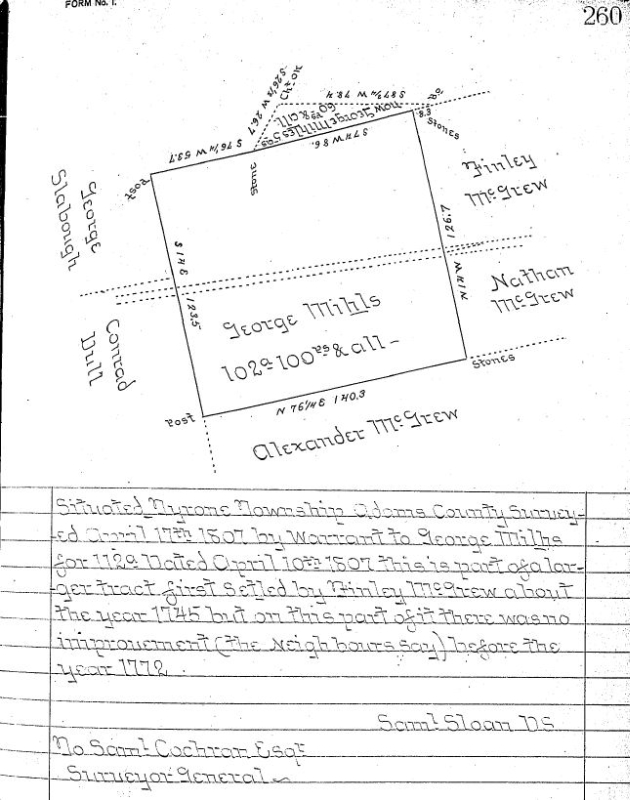 FORM No. 1.
260
S 26¼ W 26.7
Ch: on
S 87¾ W 78.4
now George Mihles 53a
60 ps & all
S 74 W 86.
8.3
Stones
S 76¼ W 53.7
Post
Stone
George
Slabough
Finley
McGrew
126.7
N 14 W
S 14 E
123.5
Nathan
McGrew
George Mihls
102a 100ps & all -
Conrad
Dull
Stones
Post
N 76¼ E 140.3
Alexander McGrew
Situated Tyrone Township Adams County Survey-
-ed April 17th 1807 by Warrant to George Milhs
for 112a Dated April 10th 1807 this is part of a lar-
-ger tract first Setled by Finley McGrew about
the year 1745 but on this part of it there was no
improvement (the Neighbours say) before the
year 1772.
Saml Sloan DS
To Saml Cochran Esqr
Surveyor General